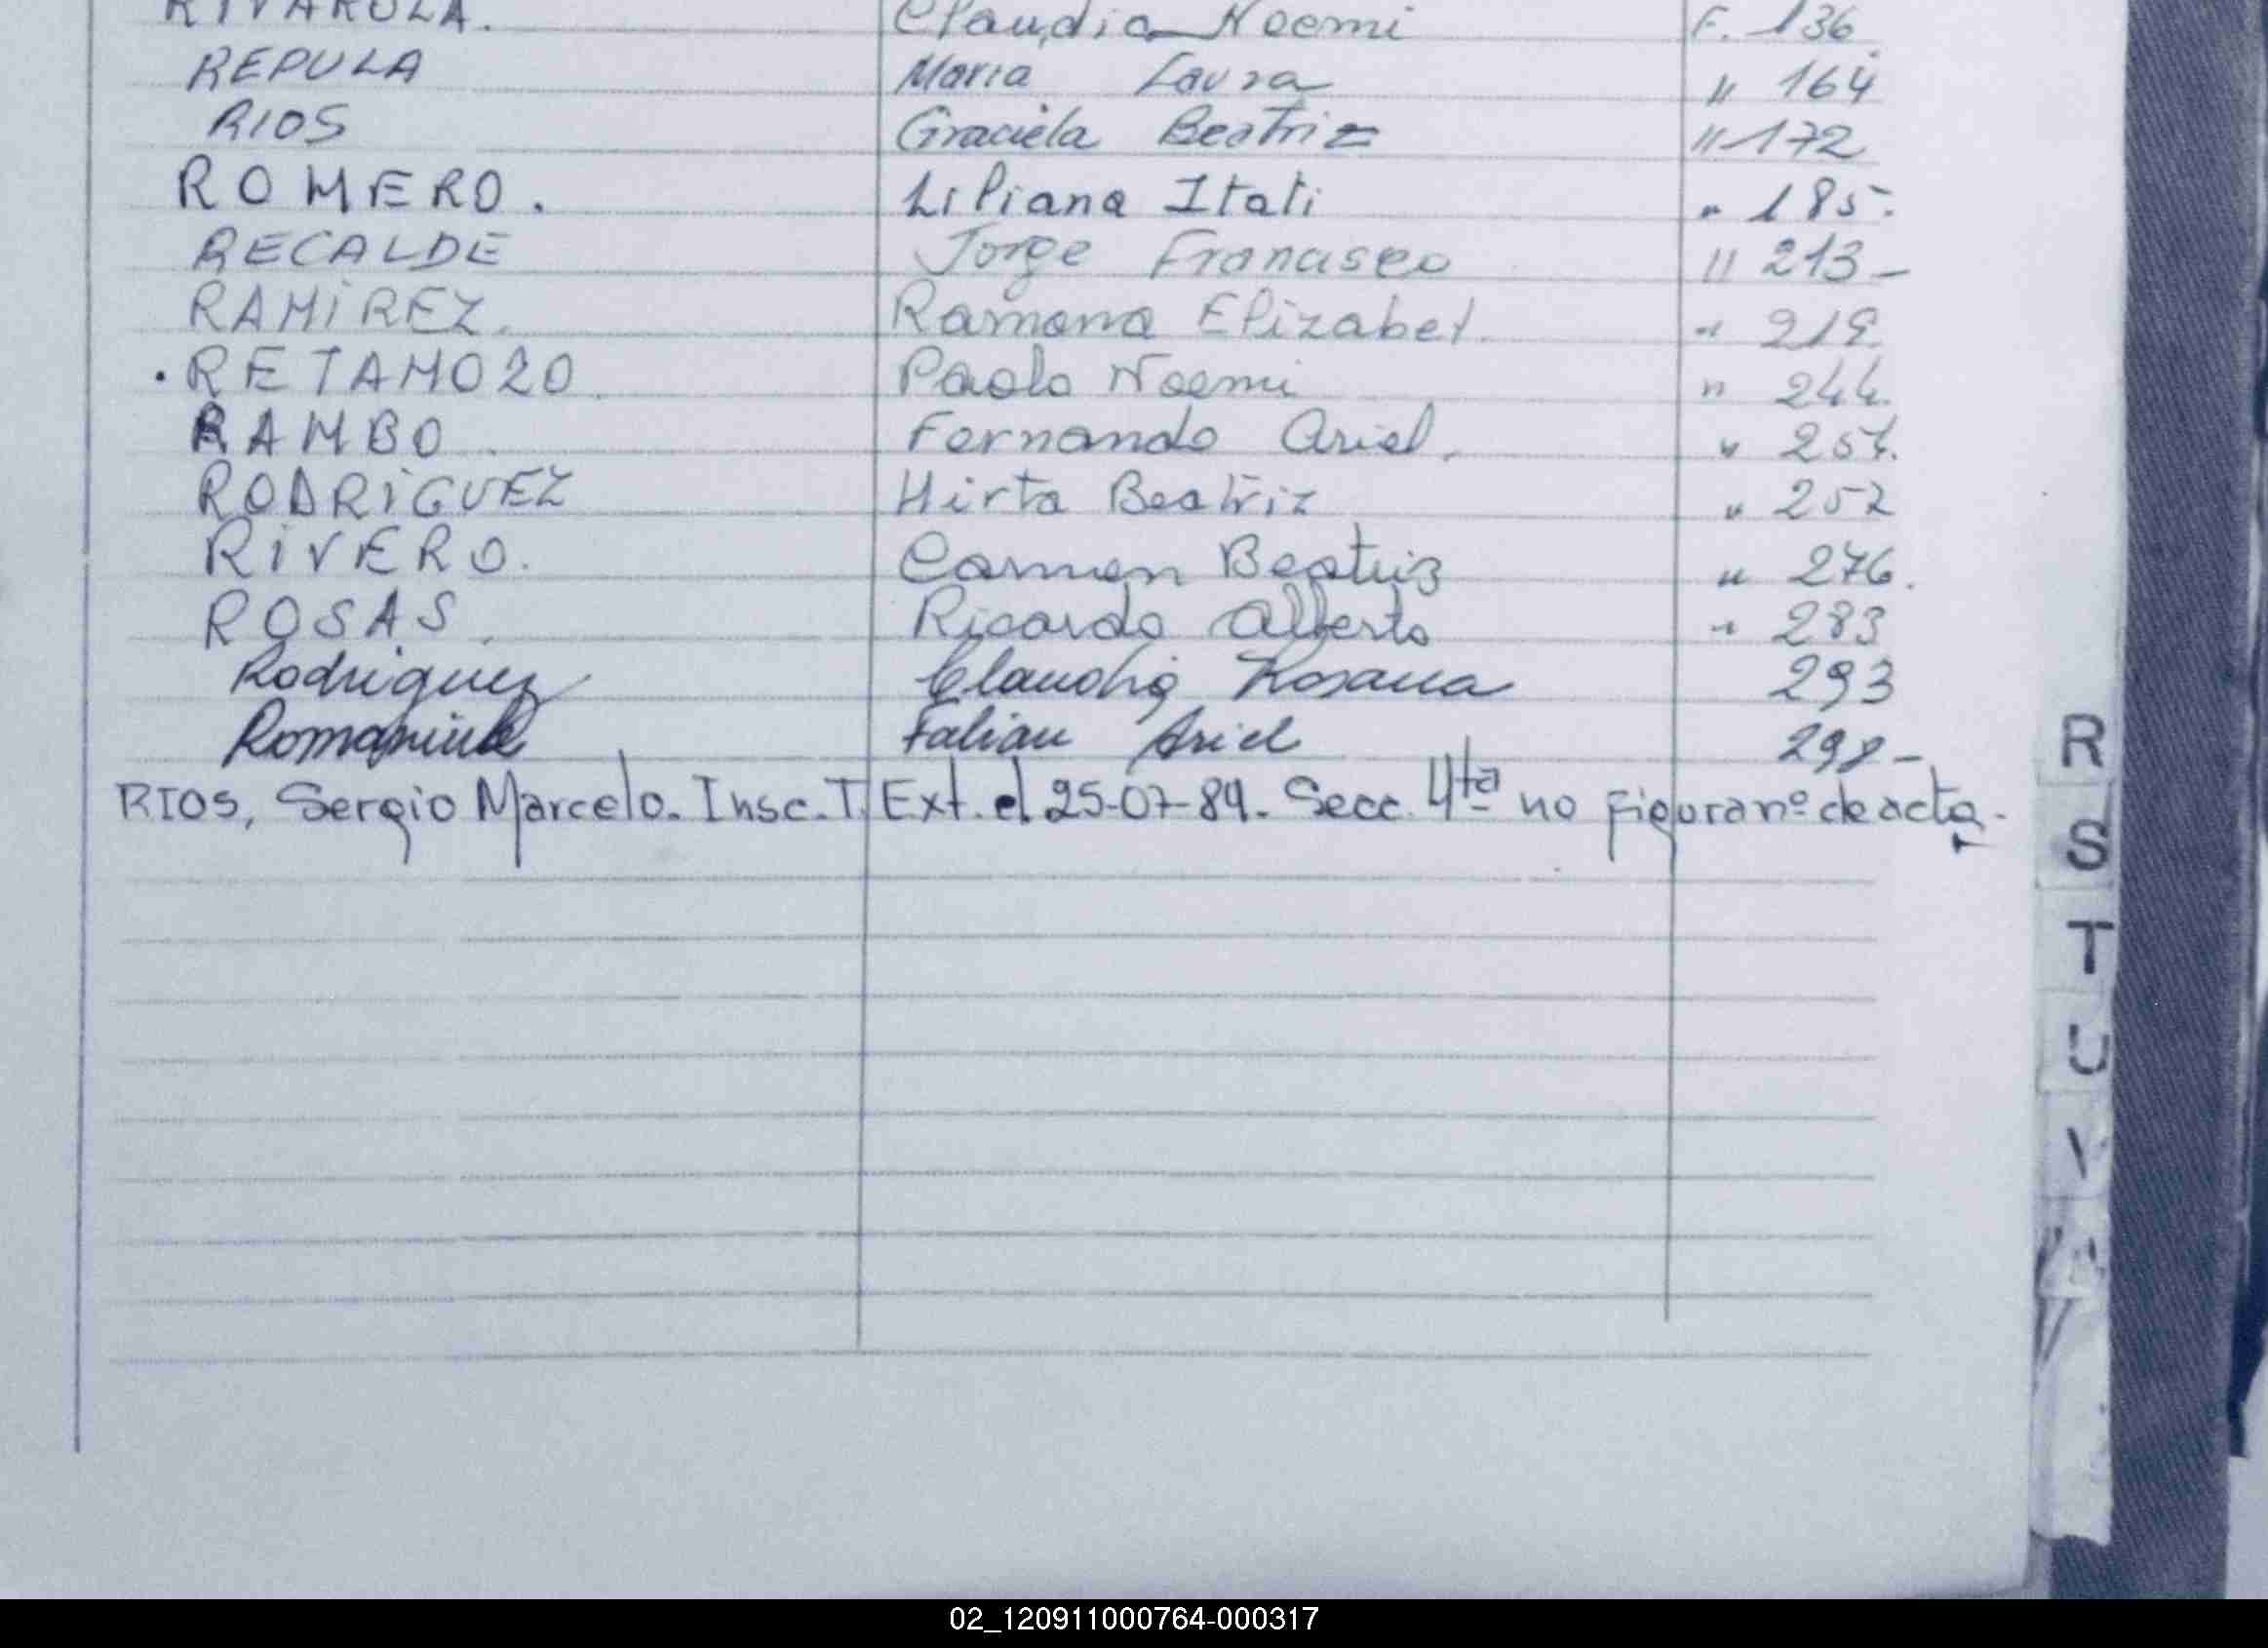 RIVAROLA. Claudia Noemi F. 136
REPULA Maria Laura " 164
RIOS Graciela Beatriz " 172
ROMERO. Liliana Itati " 185.
RECALDE Jorge Francisco " 213-
RAMIREZ. Ramona Elizabet. " 219
RETAMOZO Paola Noemi " 244.
RAMBO Fernando Ariel. "
RODRIGUEZ Mirta Beatriz " 252
RIVERO. Carmen Beatriz " 276.
ROSAS. Ricardo Alberto " 283
Rodriguez Claudia Rosana 293
Fabian Ariel 298-
RIOS, Sergio Marcelo. Insc. T. Ext. el 25-07-89. Secc. 4ta no figura nº de acta.
R
S
T
U
V
02_120911000764-000317